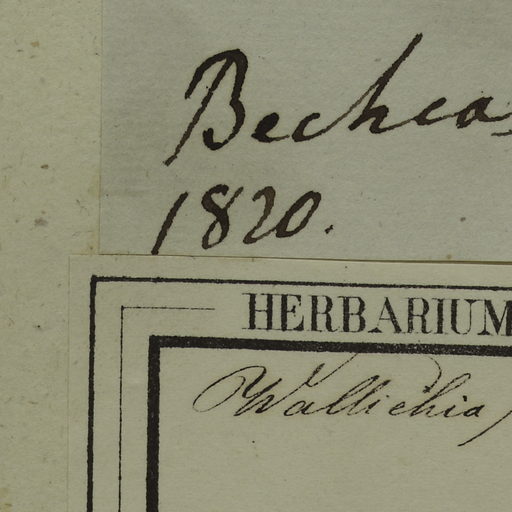 Bechea
1820.
HERBARIUM
Wallichia